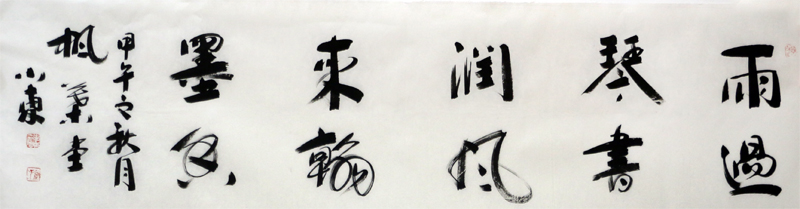 雨過
琴書
潤風
來翰
墨香
甲午之秋月
楓葉堂
小東